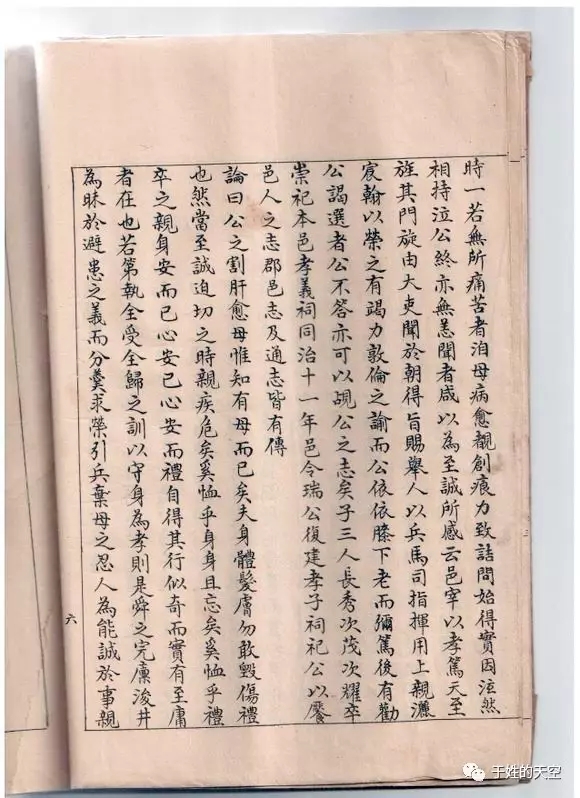 時一若無所痛苦者洎母病愈覩創痕力致詰問始得實因泫然
相持泣公終亦無恙聞者咸以為至誠所感云邑宰以孝篤天至
旌其門旋由大吏聞於朝得旨賜舉人以兵馬司指揮用上親灑
宸翰以榮之有竭力敦倫之諭而公依依膝下老而彌篤後有勸
公謁選者公不答亦可以覘公之志矣子三人長秀次茂次耀卒
崇祀本邑孝義祠同治十一年邑令瑞公復建孝子祠祀公以饜
邑人之志郡邑志及通志皆有傳
論曰公之割肝愈母惟知有母而已矣夫身體髮膚勿敢毀傷禮
也然當至誠迫切之時親疾危矣奚恤乎身身且忘矣奚恤乎禮
卒之親身安而已心安已心安而禮自得其行似奇而實有至庸
者在也若第執全受全歸之訓以守身為孝則是舜之完廩浚井
為昧於避患之義而分羹求榮引兵棄母之忍人為能誠於事親
六
于姓的天空